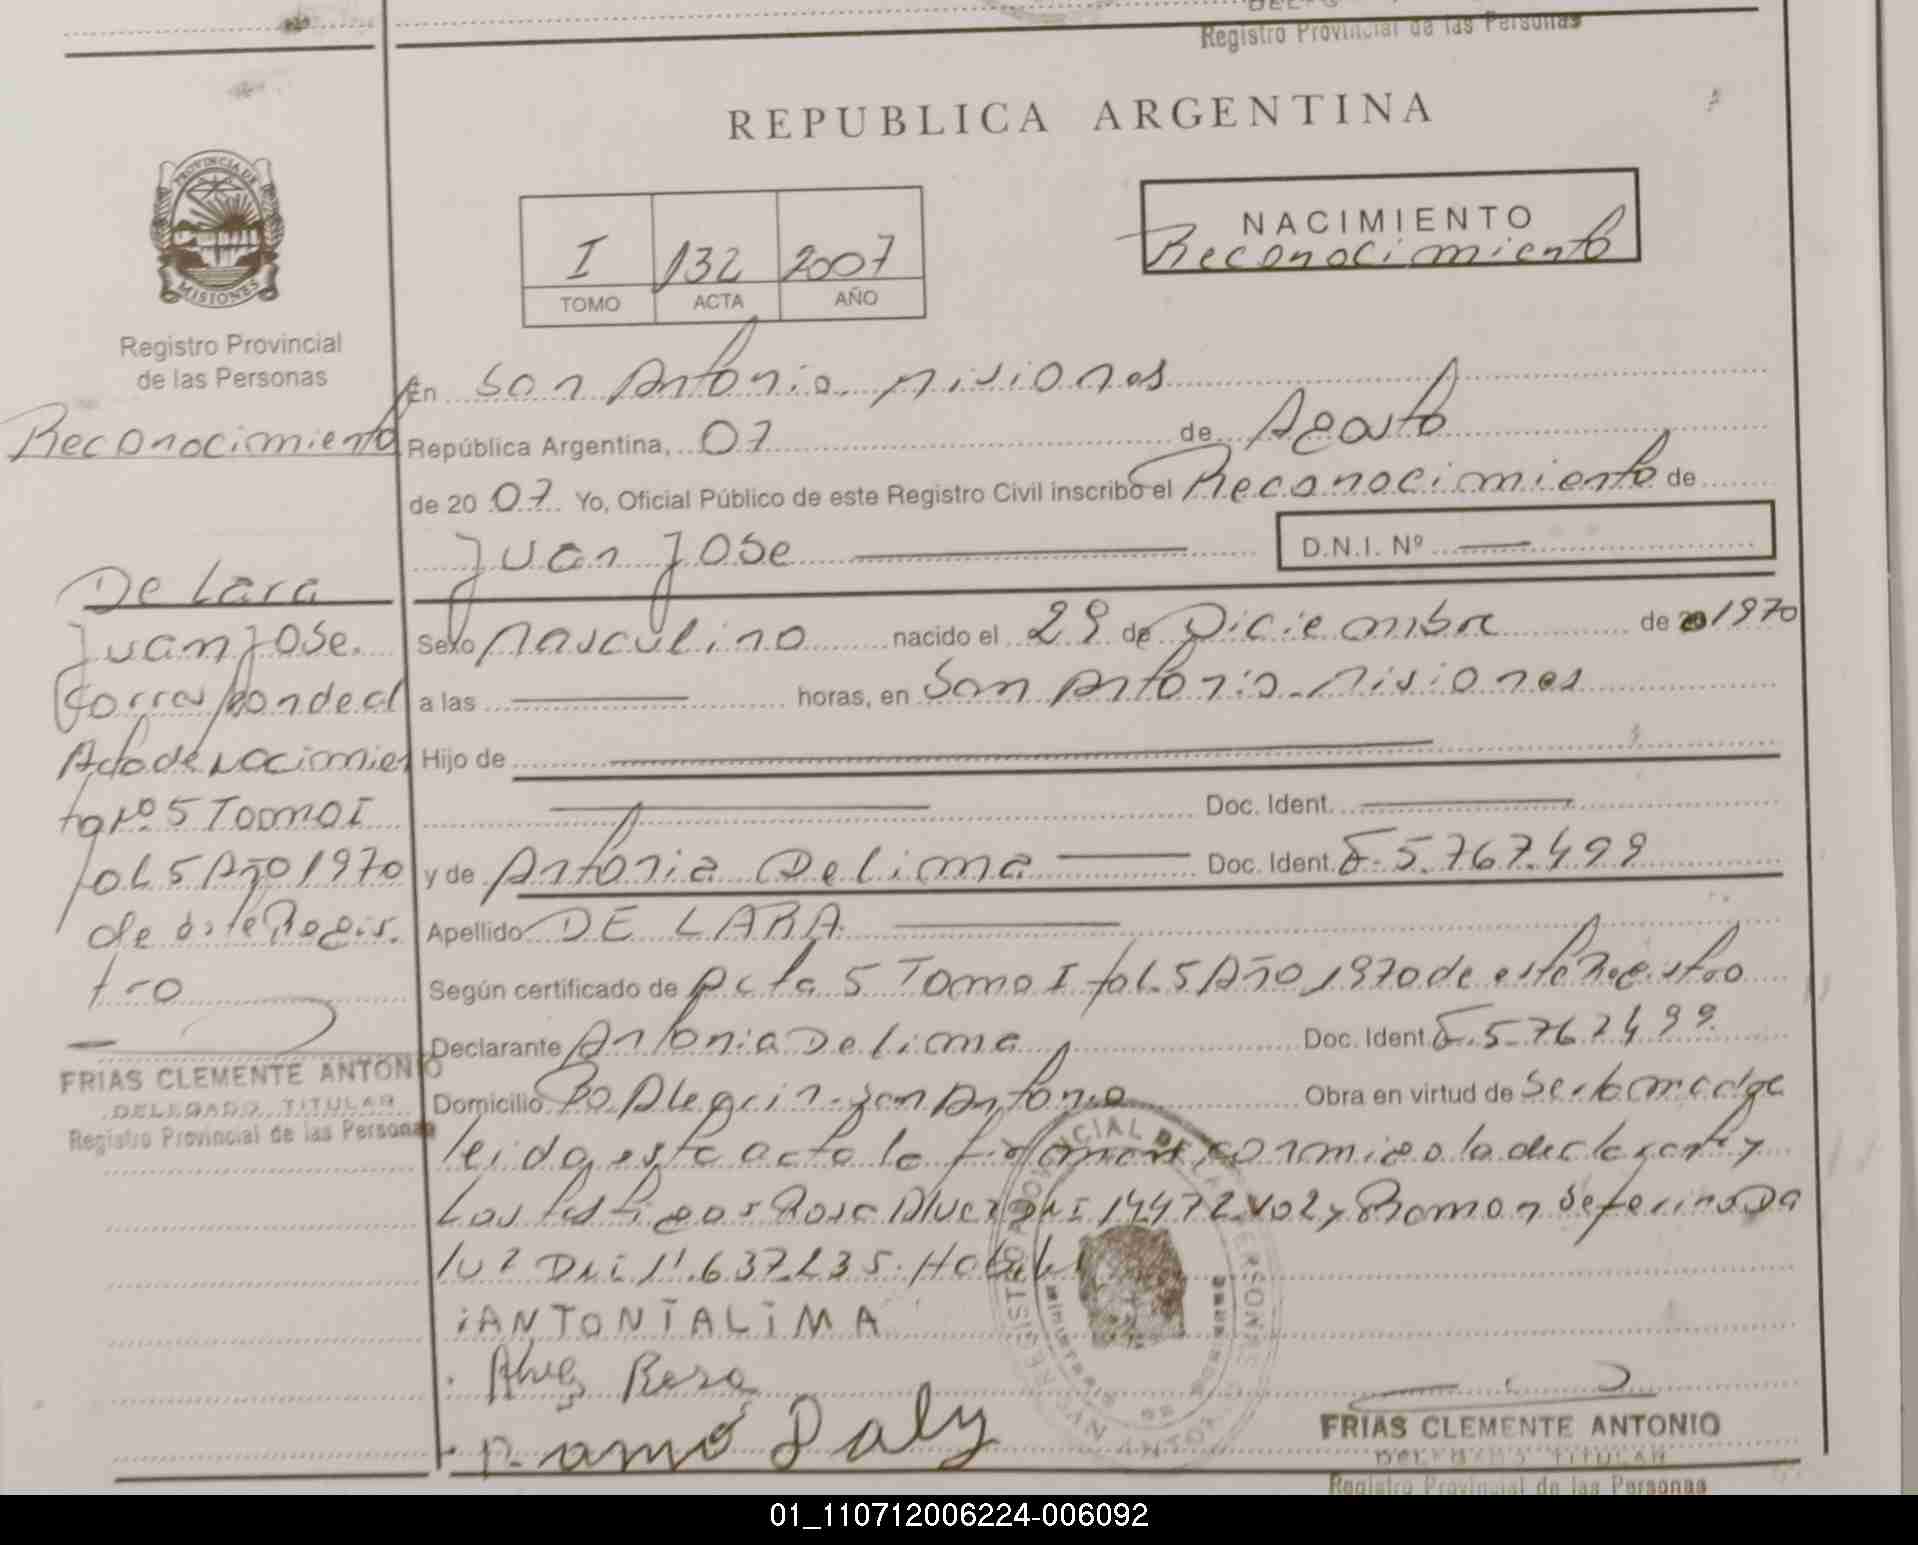 Registro Provincial de las Personas
REPUBLICA ARGENTINA
PROVINCIA DE
MISIONES
Registro Provincial
de las Personas
I 132 2007
TOMO ACTA AÑO
NACIMIENTO
Reconocimiento
Reconocimiento
De Lara
Juan Jose.
Corresponde al
Acta de Nacimien
to Nº 5 Tomo I
fol 5 Año 1970
de este Regis.
tro
FRIAS CLEMENTE ANTONIO
DELEGADO TITULAR
Registro Provincial de las Personas
En San Antonio, Misiones
República Argentina, 07 de Agosto
de 20 07 Yo, Oficial Público de este Registro Civil inscribo el Reconocimiento de
Juan Jose
D.N.I. Nº
Sexo Masculino nacido el 29 de Diciembre de 1970
a las horas, en San Antonio - Misiones
Hijo de
Doc. Ident.
y de Antonia De lima Doc. Ident. F 5.767.499
Apellido DE LARA
Según certificado de Acta 5 Tomo I fol. 5 Año 1970 de este Registro
Declarante Antonia De lima Doc. Ident. F. 5.767.499
Domicilio Bo Alegria - San Antonio Obra en virtud de Ser la madre
leida esta acta la firman conmigo la declarante y
Los testigos Rosa y Ramon Seferino Da
luz Dni 11.637.235. Habiles
ANTONIA LIMA
Alves Rosa
Ramó Daly
REGISTRO PROVINCIAL DE LAS PERSONAS
FRIAS CLEMENTE ANTONIO
DELEGADO TITULAR
Registro Provincial de las Personas
01_110712006224-006092